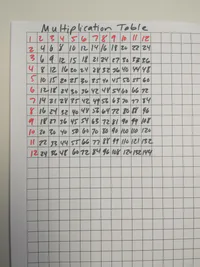 Multiplication Table
1 2 3 4 5 6 7 8 9 10 11 12
2 4 6 8 10 12 14 16 18 20 22 24
3 6 9 12 15 18 21 24 27 30 33 36
4 8 12 16 20 24 28 32 36 40 44 48
5 10 15 20 25 30 35 40 45 50 55 60
6 12 18 24 30 36 42 48 54 60 66 72
7 14 21 28 35 42 49 56 63 70 77 84
8 16 24 32 40 48 56 64 72 80 88 96
9 18 27 36 45 54 63 72 81 90 99 108
10 20 30 40 50 60 70 80 90 110 120
11 22 33 44 55 66 77 88 99 110 121 132
12 24 36 48 60 72 84 96 108 120 132 144